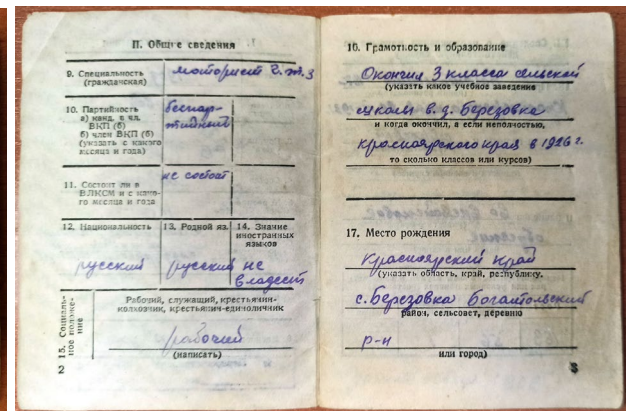 II. Общие сведения
9. Специальность
(гражданская)
моторист
10. Партийность
а) канд. в чл.
ВКП (б)
б) член ВКП (б)
(указать с какого
месяца и года)
беспар-
тийный
11. Состоит ли в
ВЛКСМ и с како-
го месяца и года
не состоит
12. Национальность
русский
13. Родной яз.
русский
14. Знание
иностранных
языков
не
владеет
15. Социаль-
ное положе-
ние
Рабочий, служащий, крестьянин-
колхозник, крестьянин-единоличник
рабочий
(написать)
2
16. Грамотность и образование
Окончил 3 класса сельской
(указать какое учебное заведение
школы в д. Березовка
и когда окончил, а если неполностью,
Красноярского края в 1926 г.
то сколько классов или курсов)
17. Место рождения
Красноярский край
(указать область, край, республику,
с. Березовка Боготольский
район, сельсовет, деревню
р-н
или город)
3